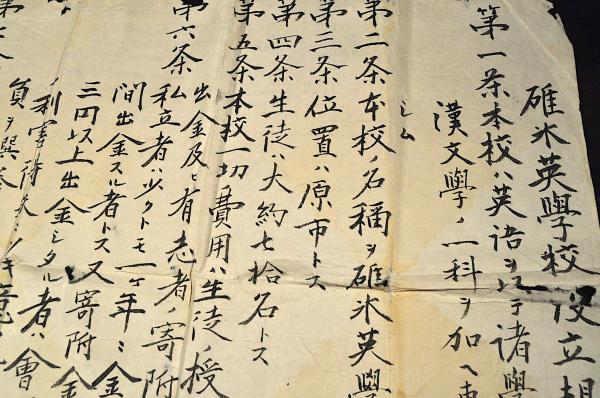 碓氷英學校設立規
第一条本校ハ英語ヲ以テ諸學
漢文學ノ一科ヲ加ヘ専
シム
第二条本校ノ名稱ヲ碓氷英學
第三条位置ハ原市トス
第四条生徒ハ大約七拾名トス
第五条本校一切費用ハ生徒ノ授
出金及ヒ有志者ノ寄附
第六条私立者ハ少クトモ一ヶ年ニ金
間出金スル者トス又寄附金
三円以上出金シタル者ハ會
ノ利害得失
員ヲ撰挙